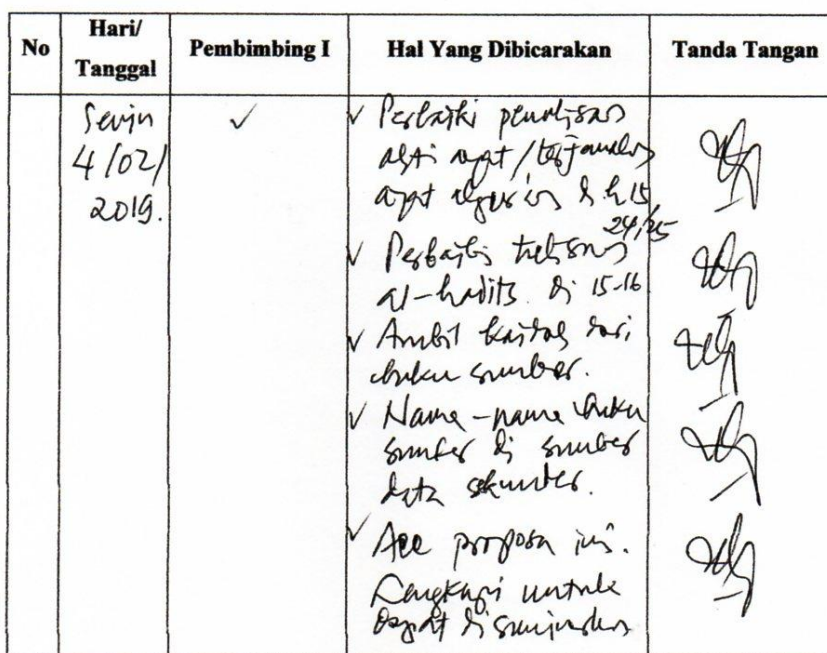 No
Hari/
Tanggal
Pembimbing I
Hal Yang Dibicarakan
Tanda Tangan
Senin
4/02/
2019.
✓
✓ Perbaiki penulisan
ayat / terjemahan
ayat h 15
24,25
✓ Perbaiki tulisan
al-hadits di 15-16
✓ Ambil dari
buku sumber.
✓ Nama-nama buku
sumber di sumber
data sekunder.
✓ Acc proposal ini.
Lengkapi untuk
dapat